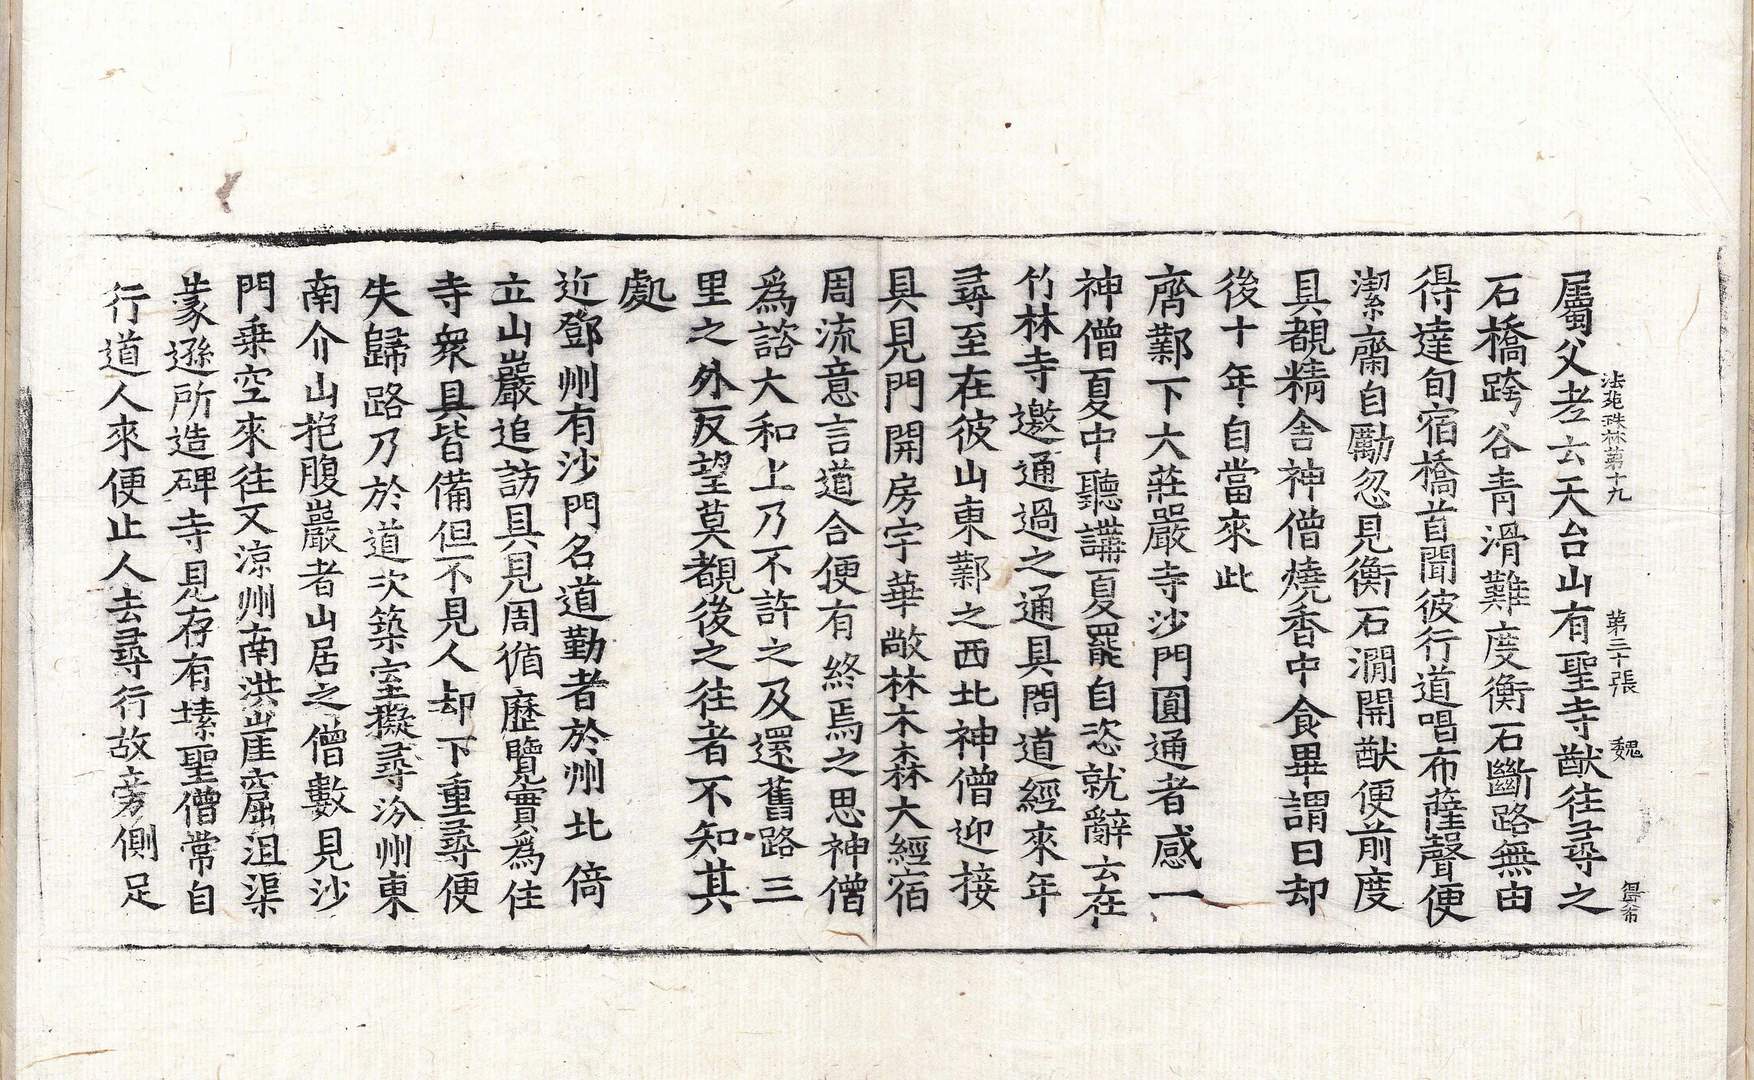 法苑珠林第十九　第三十張　魏
屬父老云天台山有聖寺猷往尋之
石橋跨谷青滑難度衡石斷路無由
得達旬宿橋首聞彼行道唱布薩聲便
潔齋自勵忽見衡石㵎開猷便前度
具覩精舍神僧燒香中食畢謂曰却
後十年自當來此
齊鄴下大莊嚴寺沙門圓通者感一
神僧夏中聽講夏罷自恣就辭云在
竹林寺邀通過之通具問道經來年
尋至在彼山東鄴之西北神僧迎接
具見門開房宇華敞林木森大經宿
周流意言道合便有終焉之思神僧
爲諮大和上乃不許之及還舊路三
里之外反望莫覩後之往者不知其
處
近鄧州有沙門名道勤者於州北倚
立山巖追訪具見周循歷覽實爲住
寺衆具皆備但不見人却下重尋便
失歸路乃於道次築室擬尋汾州東
南介山抱腹巖者山居之僧數見沙
門乘空來往又涼州南洪崖窟沮渠
蒙遜所造碑寺見存有塐聖僧常自
行道人來便止人去尋行故旁側足